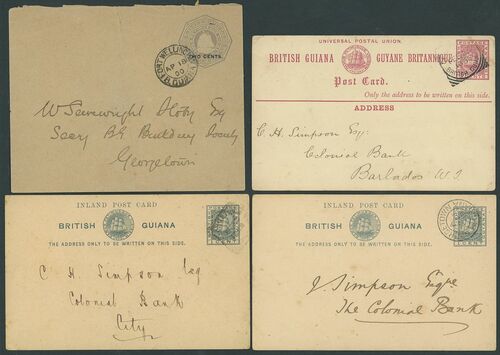 TWO CENTS
FORT WELLINGTON
AP 18
00
B. GUIANA
Esq
Secy BG Building Society
Georgetown
UNIVERSAL POSTAL UNION.
BRITISH GUIANA GUYANE BRITANNIQUE
Post Card.
Only the address to be written on this side.
ADDRESS
POSTAGE
C. H. Simpson Esq:
Colonial Bank
Barbados W.I
INLAND POST CARD
BRITISH GUIANA
THE ADDRESS ONLY TO BE WRITTEN ON THIS SIDE.
1 CENT
C H Simpson Esq
Colonial Bank
City
INLAND POST CARD
BRITISH GUIANA
THE ADDRESS ONLY TO BE WRITTEN ON THIS SIDE.
1 CENT
J. Simpson Esqre
The Colonial Bank